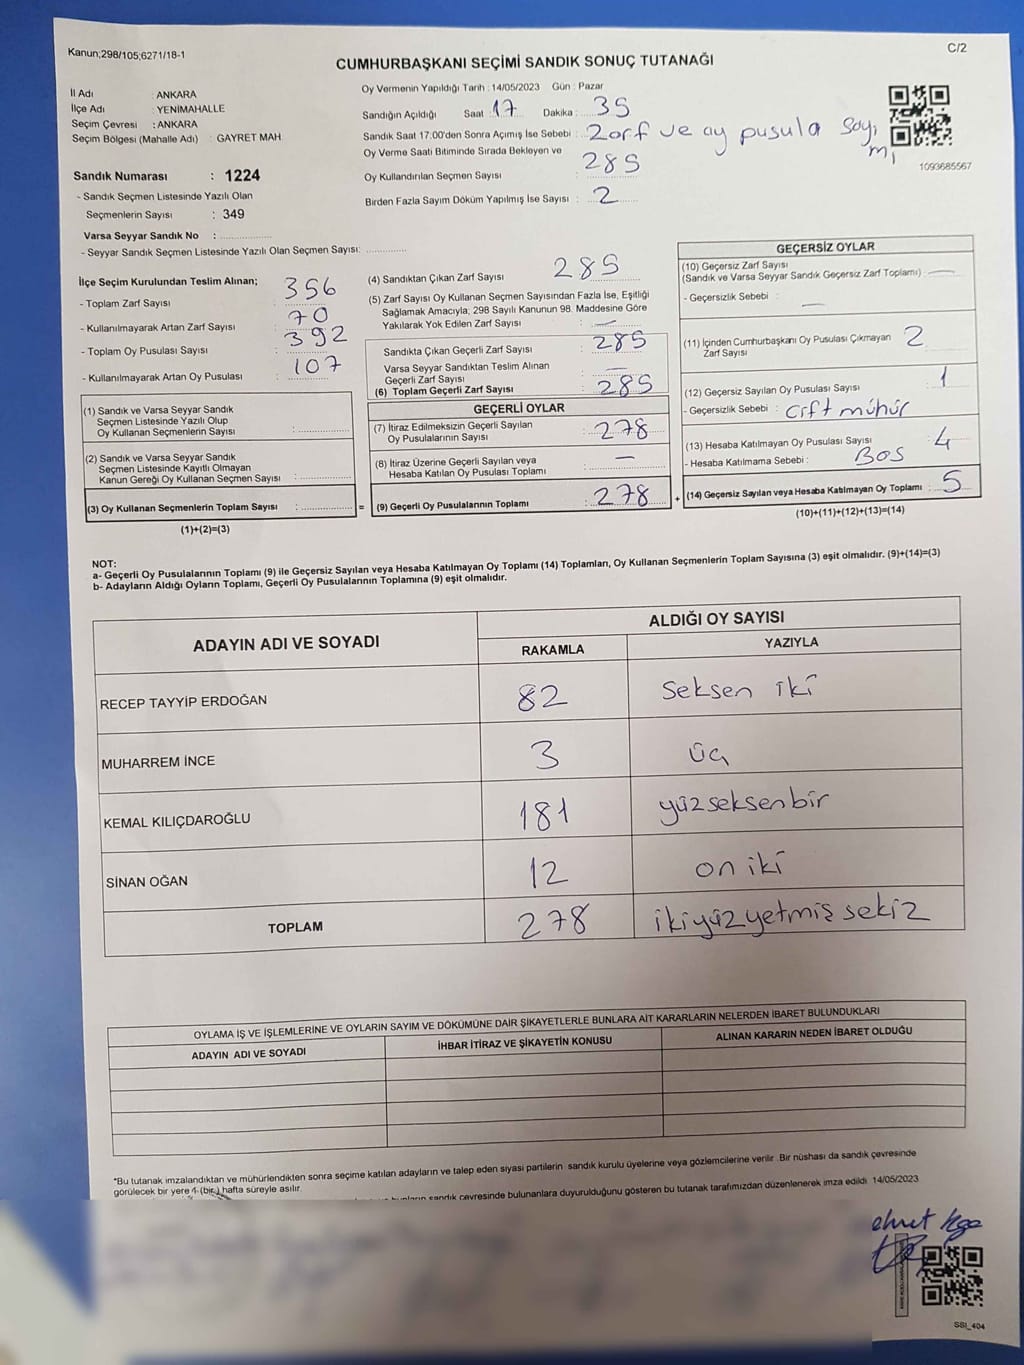 Kanun;298/105;6271/18-1
C/2
CUMHURBAŞKANI SEÇİMİ SANDIK SONUÇ TUTANAĞI
İl Adı : ANKARA
İlçe Adı : YENİMAHALLE
Seçim Çevresi : ANKARA
Seçim Bölgesi (Mahalle Adı) : GAYRET MAH.
Sandık Numarası : 1224
- Sandık Seçmen Listesinde Yazılı Olan
Seçmenlerin Sayısı : 349
Varsa Seyyar Sandık No :
- Seyyar Sandık Seçmen Listesinde Yazılı Olan Seçmen Sayısı:
Oy Vermenin Yapıldığı Tarih : 14/05/2023 Gün : Pazar
Sandığın Açıldığı Saat : 17 Dakika : 35
Sandık Saat 17:00'den Sonra Açımış İse Sebebi : Zarf ve oy pusula sayı
mı
Oy Verme Saati Bitiminde Sırada Bekleyen ve
Oy Kullandırılan Seçmen Sayısı : 285
Birden Fazla Sayım Döküm Yapılmış İse Sayısı : 2
1093685567
İlçe Seçim Kurulundan Teslim Alınan;
- Toplam Zarf Sayısı : 356
- Kullanılmayarak Artan Zarf Sayısı : 70
- Toplam Oy Pusulası Sayısı : 392
- Kullanılmayarak Artan Oy Pusulası : 107
(1) Sandık ve Varsa Seyyar Sandık
Seçmen Listesinde Yazılı Olup
Oy Kullanan Seçmenlerin Sayısı :
(2) Sandık ve Varsa Seyyar Sandık
Seçmen Listesinde Kayıtlı Olmayan
Kanun Gereği Oy Kullanan Seçmen Sayısı :
(3) Oy Kullanan Seçmenlerin Toplam Sayısı : =
(1)+(2)=(3)
(4) Sandıktan Çıkan Zarf Sayısı : 285
(5) Zarf Sayısı Oy Kullanan Seçmen Sayısından Fazla İse, Eşitliği
Sağlamak Amacıyla; 298 Sayılı Kanunun 98. Maddesine Göre
Yakılarak Yok Edilen Zarf Sayısı : —
Sandıkta Çıkan Geçerli Zarf Sayısı : 285
Varsa Seyyar Sandıktan Teslim Alınan
Geçerli Zarf Sayısı : —
(6) Toplam Geçerli Zarf Sayısı : 285
GEÇERLİ OYLAR
(7) İtiraz Edilmeksizin Geçerli Sayılan
Oy Pusulalarının Sayısı : 278
(8) İtiraz Üzerine Geçerli Sayılan veya
Hesaba Katılan Oy Pusulası Toplamı : —
(9) Geçerli Oy Pusulalarının Toplamı : 278 +
GEÇERSİZ OYLAR
(10) Geçersiz Zarf Sayısı
(Sandık ve Varsa Seyyar Sandık Geçersiz Zarf Toplamı) : —
- Geçersizlik Sebebi : —
(11) İçinden Cumhurbaşkanı Oy Pusulası Çıkmayan
Zarf Sayısı : 2
(12) Geçersiz Sayılan Oy Pusulası Sayısı : 1
- Geçersizlik Sebebi : Çift mühür
(13) Hesaba Katılmayan Oy Pusulası Sayısı : 4
- Hesaba Katılmama Sebebi : BOS
(14) Geçersiz Sayılan veya Hesaba Katılmayan Oy Toplamı : 5
(10)+(11)+(12)+(13)=(14)
NOT:
a- Geçerli Oy Pusulalarının Toplamı (9) ile Geçersiz Sayılan veya Hesaba Katılmayan Oy Toplamı (14) Toplamları, Oy Kullanan Seçmenlerin Toplam Sayısına (3) eşit olmalıdır. (9)+(14)=(3)
b- Adayların Aldığı Oyların Toplamı, Geçerli Oy Pusulalarının Toplamına (9) eşit olmalıdır.
ADAYIN ADI VE SOYADI
ALDIĞI OY SAYISI
RAKAMLA YAZIYLA
RECEP TAYYİP ERDOĞAN 82 seksen iki
MUHARREM İNCE 3 üç
KEMAL KILIÇDAROĞLU 181 yüzseksenbir
SİNAN OĞAN 12 on iki
TOPLAM 278 ikiyüzyetmiş sekiz
OYLAMA İŞ VE İŞLEMLERİNE VE OYLARIN SAYIM VE DÖKÜMÜNE DAİR ŞİKAYETLERLE BUNLARA AİT KARARLARIN NELERDEN İBARET BULUNDUKLARI
ADAYIN ADI VE SOYADI İHBAR İTİRAZ VE ŞİKAYETİN KONUSU ALINAN KARARIN NEDEN İBARET OLDUĞU
*Bu tutanak imzalandıktan ve mühürlendikten sonra seçime katılan adayların ve talep eden siyasi partilerin sandık kurulu üyelerine veya gözlemcilerine verilir .Bir nüshası da sandık çevresinde
görülecek bir yere 1 (bir ) hafta süreyle asılır.
sandık çevresinde bulunanlara duyurulduğunu gösteren bu tutanak tarafımızdan düzenlenerek imza edildi 14/05/2023
SSI_404